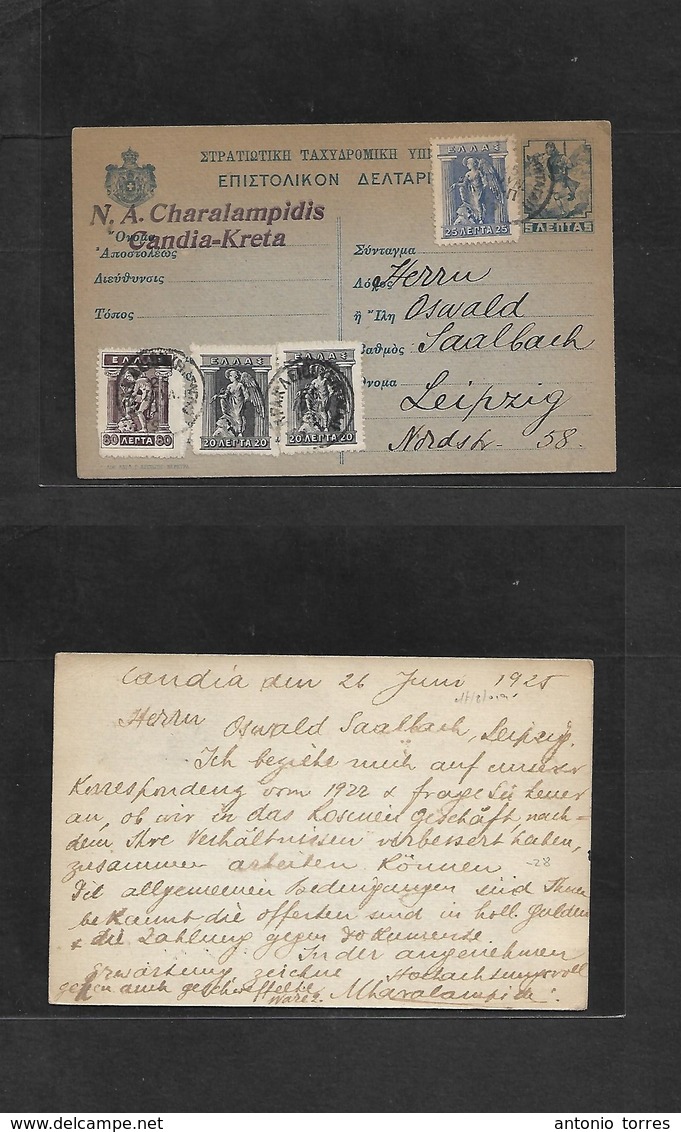 ΣΤΡΑΤΙΩΤΙΚΗ ΤΑΧΥΔΡΟΜΙΚΗ ΥΠΗ
ΕΠΙΣΤΟΛΙΚΟΝ ΔΕΛΤΑΡΙ
N. A. Charalampidis
Candia-Kreta
Ὄνομα
Ἀποστολέως
Διεύθυνσις
Τόπος
ΕΛΛΑΣ
25 ΛΕΠΤΑ 25
5 ΛΕΠΤΑ 5
Σύνταγμα
Λόχος
ἢ Ἴλη
Βαθμὸς
Ὄνομα
Herrn
Oswald
Saalbach
Leipzig
Nordstr. 58.
ΕΛΛΑΣ
80 ΛΕΠΤΑ 80
ΕΛΛΑΣ
20 ΛΕΠΤΑ 20
ΕΛΛΑΣ
20 ΛΕΠΤΑ 20
Candia den 26 Juni 1925
Herrn Oswald Saalbach, Leipzig.
Ich beziehe mich auf unsere
Korrespondenz vom 1922 & frage Sie heuer
an, ob wir in das Rosinen Geschäft, nach-
dem, Ihre Verhältnissen verbessert haben,
zusammen arbeiten können.
-28
Die allgemeinen Bedengangen sind Ihnen
bekannt die offerten sind in holl. Gulden
& die Zahlung gegen Dokumente.
In der angenehmen
Erwartung zeichne Hochachtungsvoll
gegen auch geschwefelte
Ware?
NCharalampidis
www.delcampe.net
antonio torres